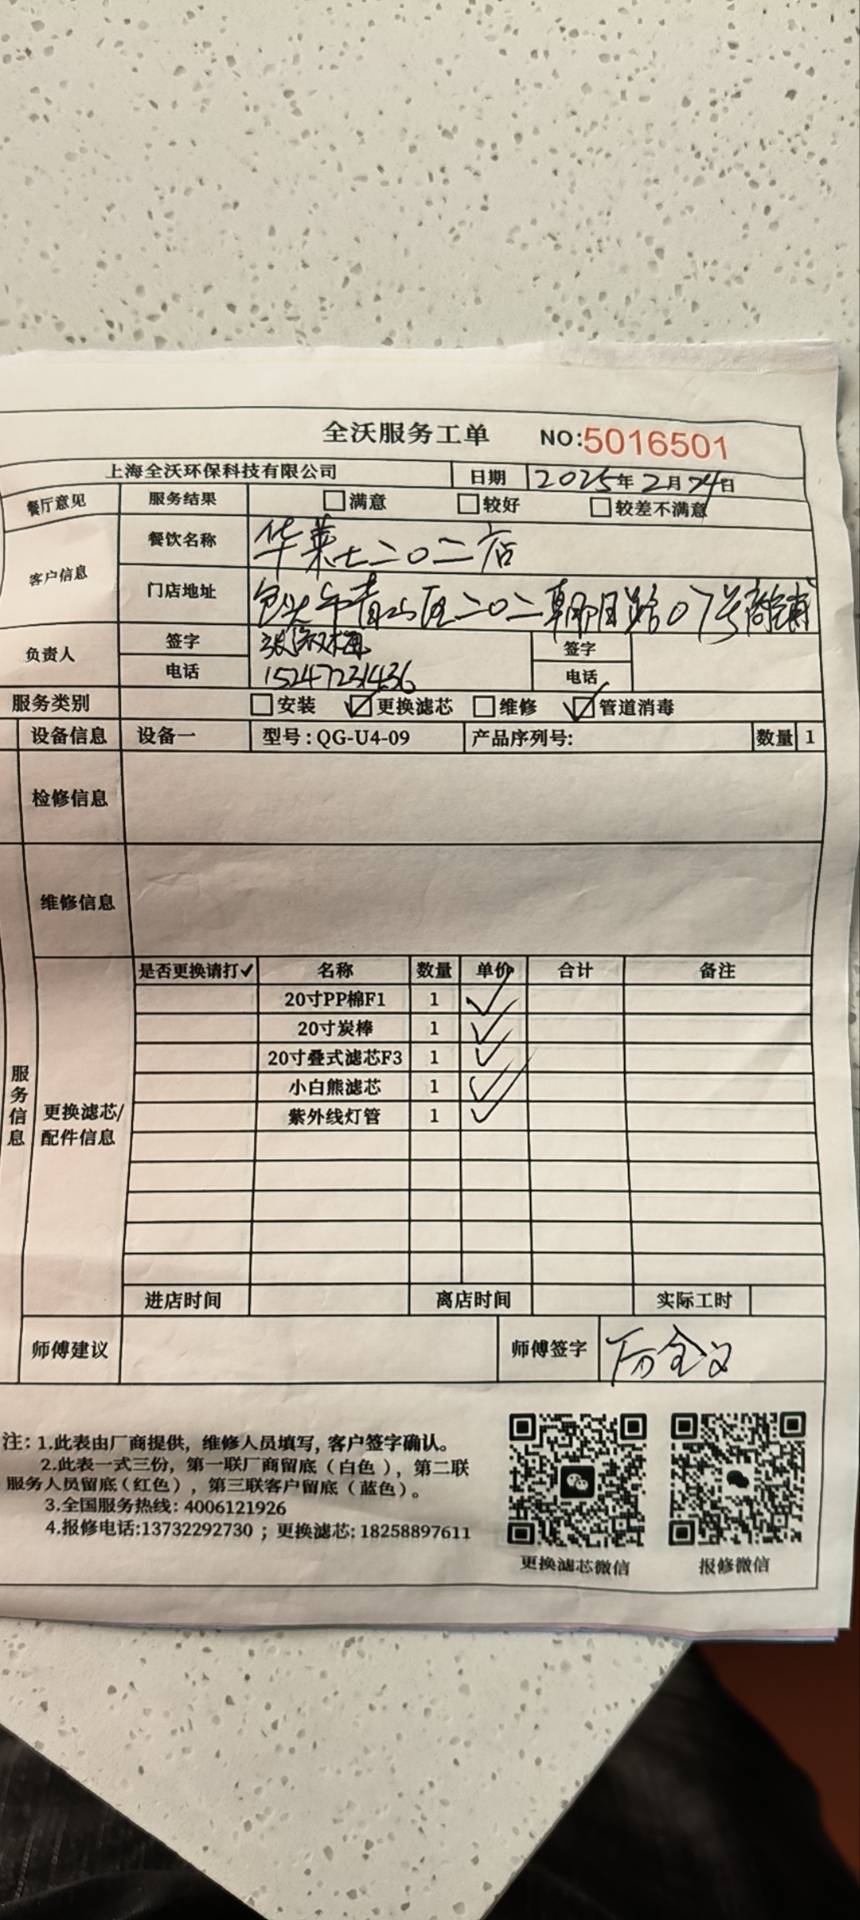 全沃服务工单 NO:5016501
上海全沃环保科技有限公司 日期 2025年2月24日
餐厅意见 服务结果 □满意 □较好 □较差不满意
客户信息 餐饮名称 华莱士二〇二店
门店地址 包头市青山区二〇二朝阳路07号商铺
负责人 签字 签字
电话 15247231436 电话
服务类别 □安装 ☑更换滤芯 □维修 ☑管道消毒
设备信息 设备一 型号:QG-U4-09 产品序列号: 数量 1
检修信息
维修信息
服务信息
更换滤芯/配件信息
是否更换请打✓ 名称 数量 单价 合计 备注
20寸PP棉F1 1 ✓
20寸炭棒 1 ✓
20寸叠式滤芯F3 1 ✓
小白熊滤芯 1 ✓
紫外线灯管 1 ✓
进店时间 离店时间 实际工时
师傅建议 师傅签字
注: 1.此表由厂商提供，维修人员填写，客户签字确认。
2.此表一式三份，第一联厂商留底（白色），第二联
服务人员留底（红色），第三联客户留底（蓝色）。
3.全国服务热线: 4006121926
4.报修电话:13732292730 ; 更换滤芯: 18258897611
更换滤芯微信 报修微信